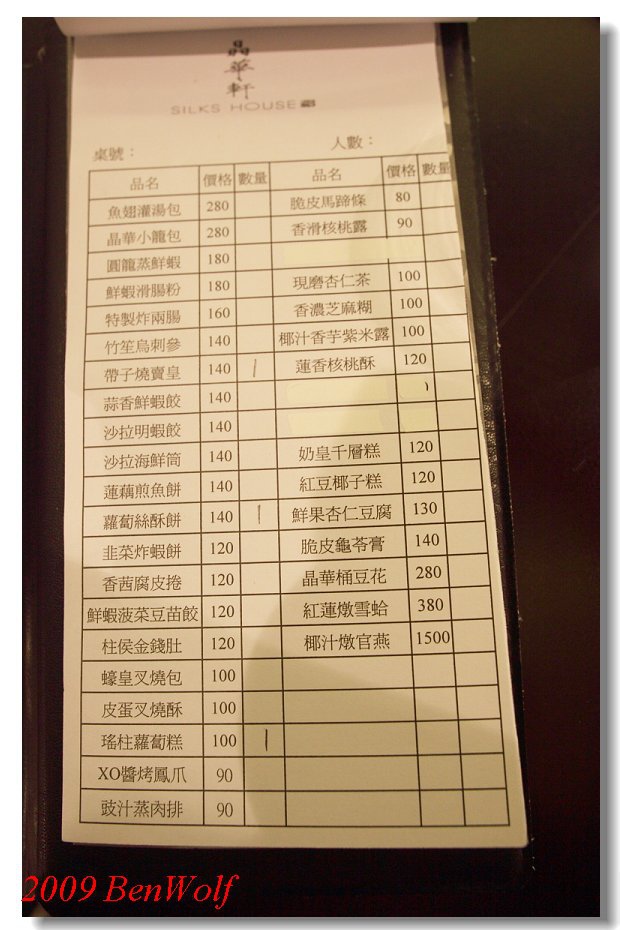 晶華軒
SILKS HOUSE
桌號： 人數：
品名 價格 數量 品名 價格 數量
魚翅灌湯包 280 脆皮馬蹄條 80
晶華小籠包 280 香滑核桃露 90
圓籠蒸鮮蝦 180
鮮蝦滑腸粉 180 現磨杏仁茶 100
特製炸兩腸 160 香濃芝麻糊 100
竹笙烏刺參 140 椰汁香芋紫米露 100
帶子燒賣皇 140 蓮香核桃酥 120
蒜香鮮蝦餃 140
沙拉明蝦餃 140
沙拉海鮮筒 140 奶皇千層糕 120
蓮藕煎魚餅 140 紅豆椰子糕 120
蘿蔔絲酥餅 140 鮮果杏仁豆腐 130
韭菜炸蝦餅 120 脆皮龜苓膏 140
香茜腐皮捲 120 晶華桶豆花 280
鮮蝦菠菜豆苗餃 120 紅蓮燉雪蛤 380
柱侯金錢肚 120 椰汁燉官燕 1500
蠔皇叉燒包 100
皮蛋叉燒酥 100
瑤柱蘿蔔糕 100
XO醬烤鳳爪 90
豉汁蒸肉排 90
2009 BenWolf